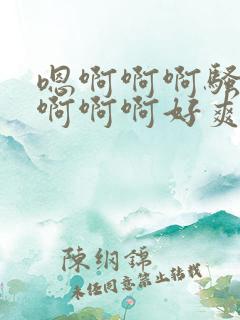 嗯啊啊啊骚
啊啊啊好爽
陳綱錦
未经同意禁止转载